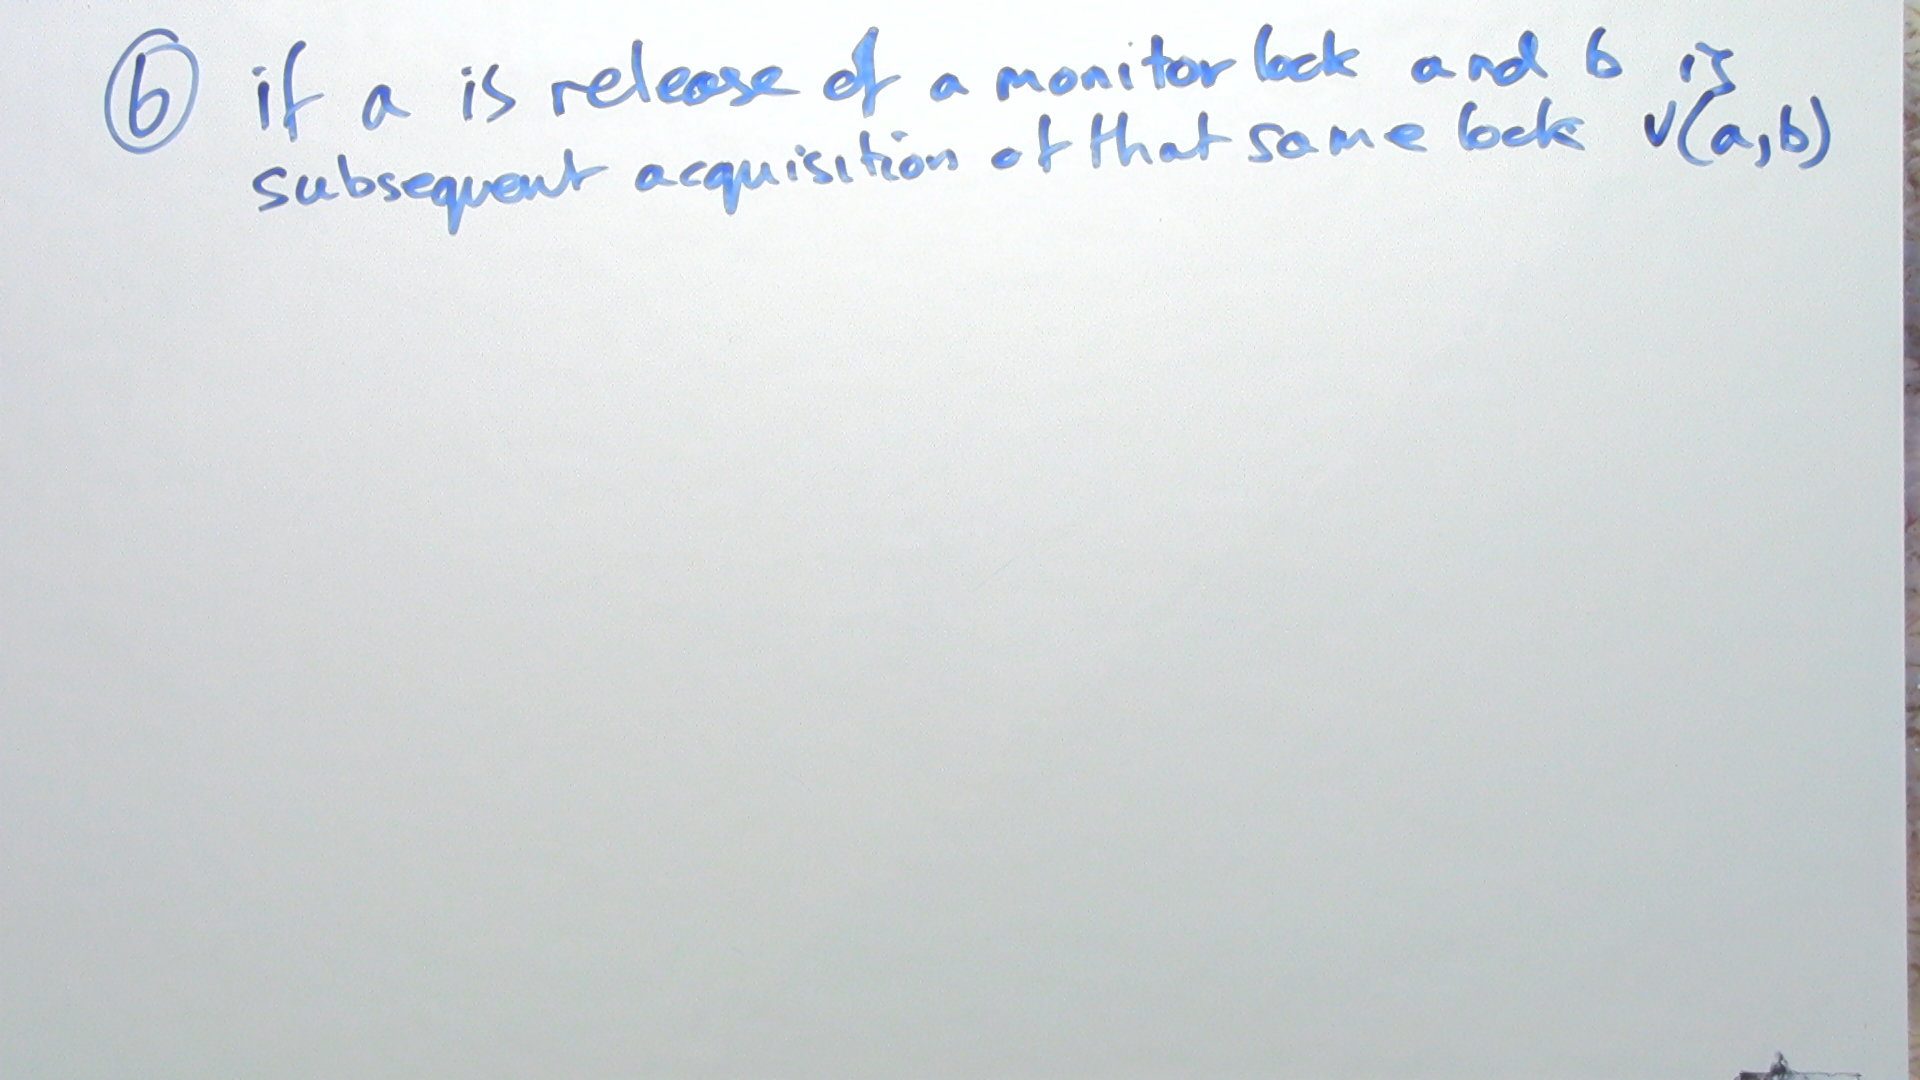 ⑥ if a is release of a monitor lock and b is
subsequent acquisition of that same lock v(a,b)